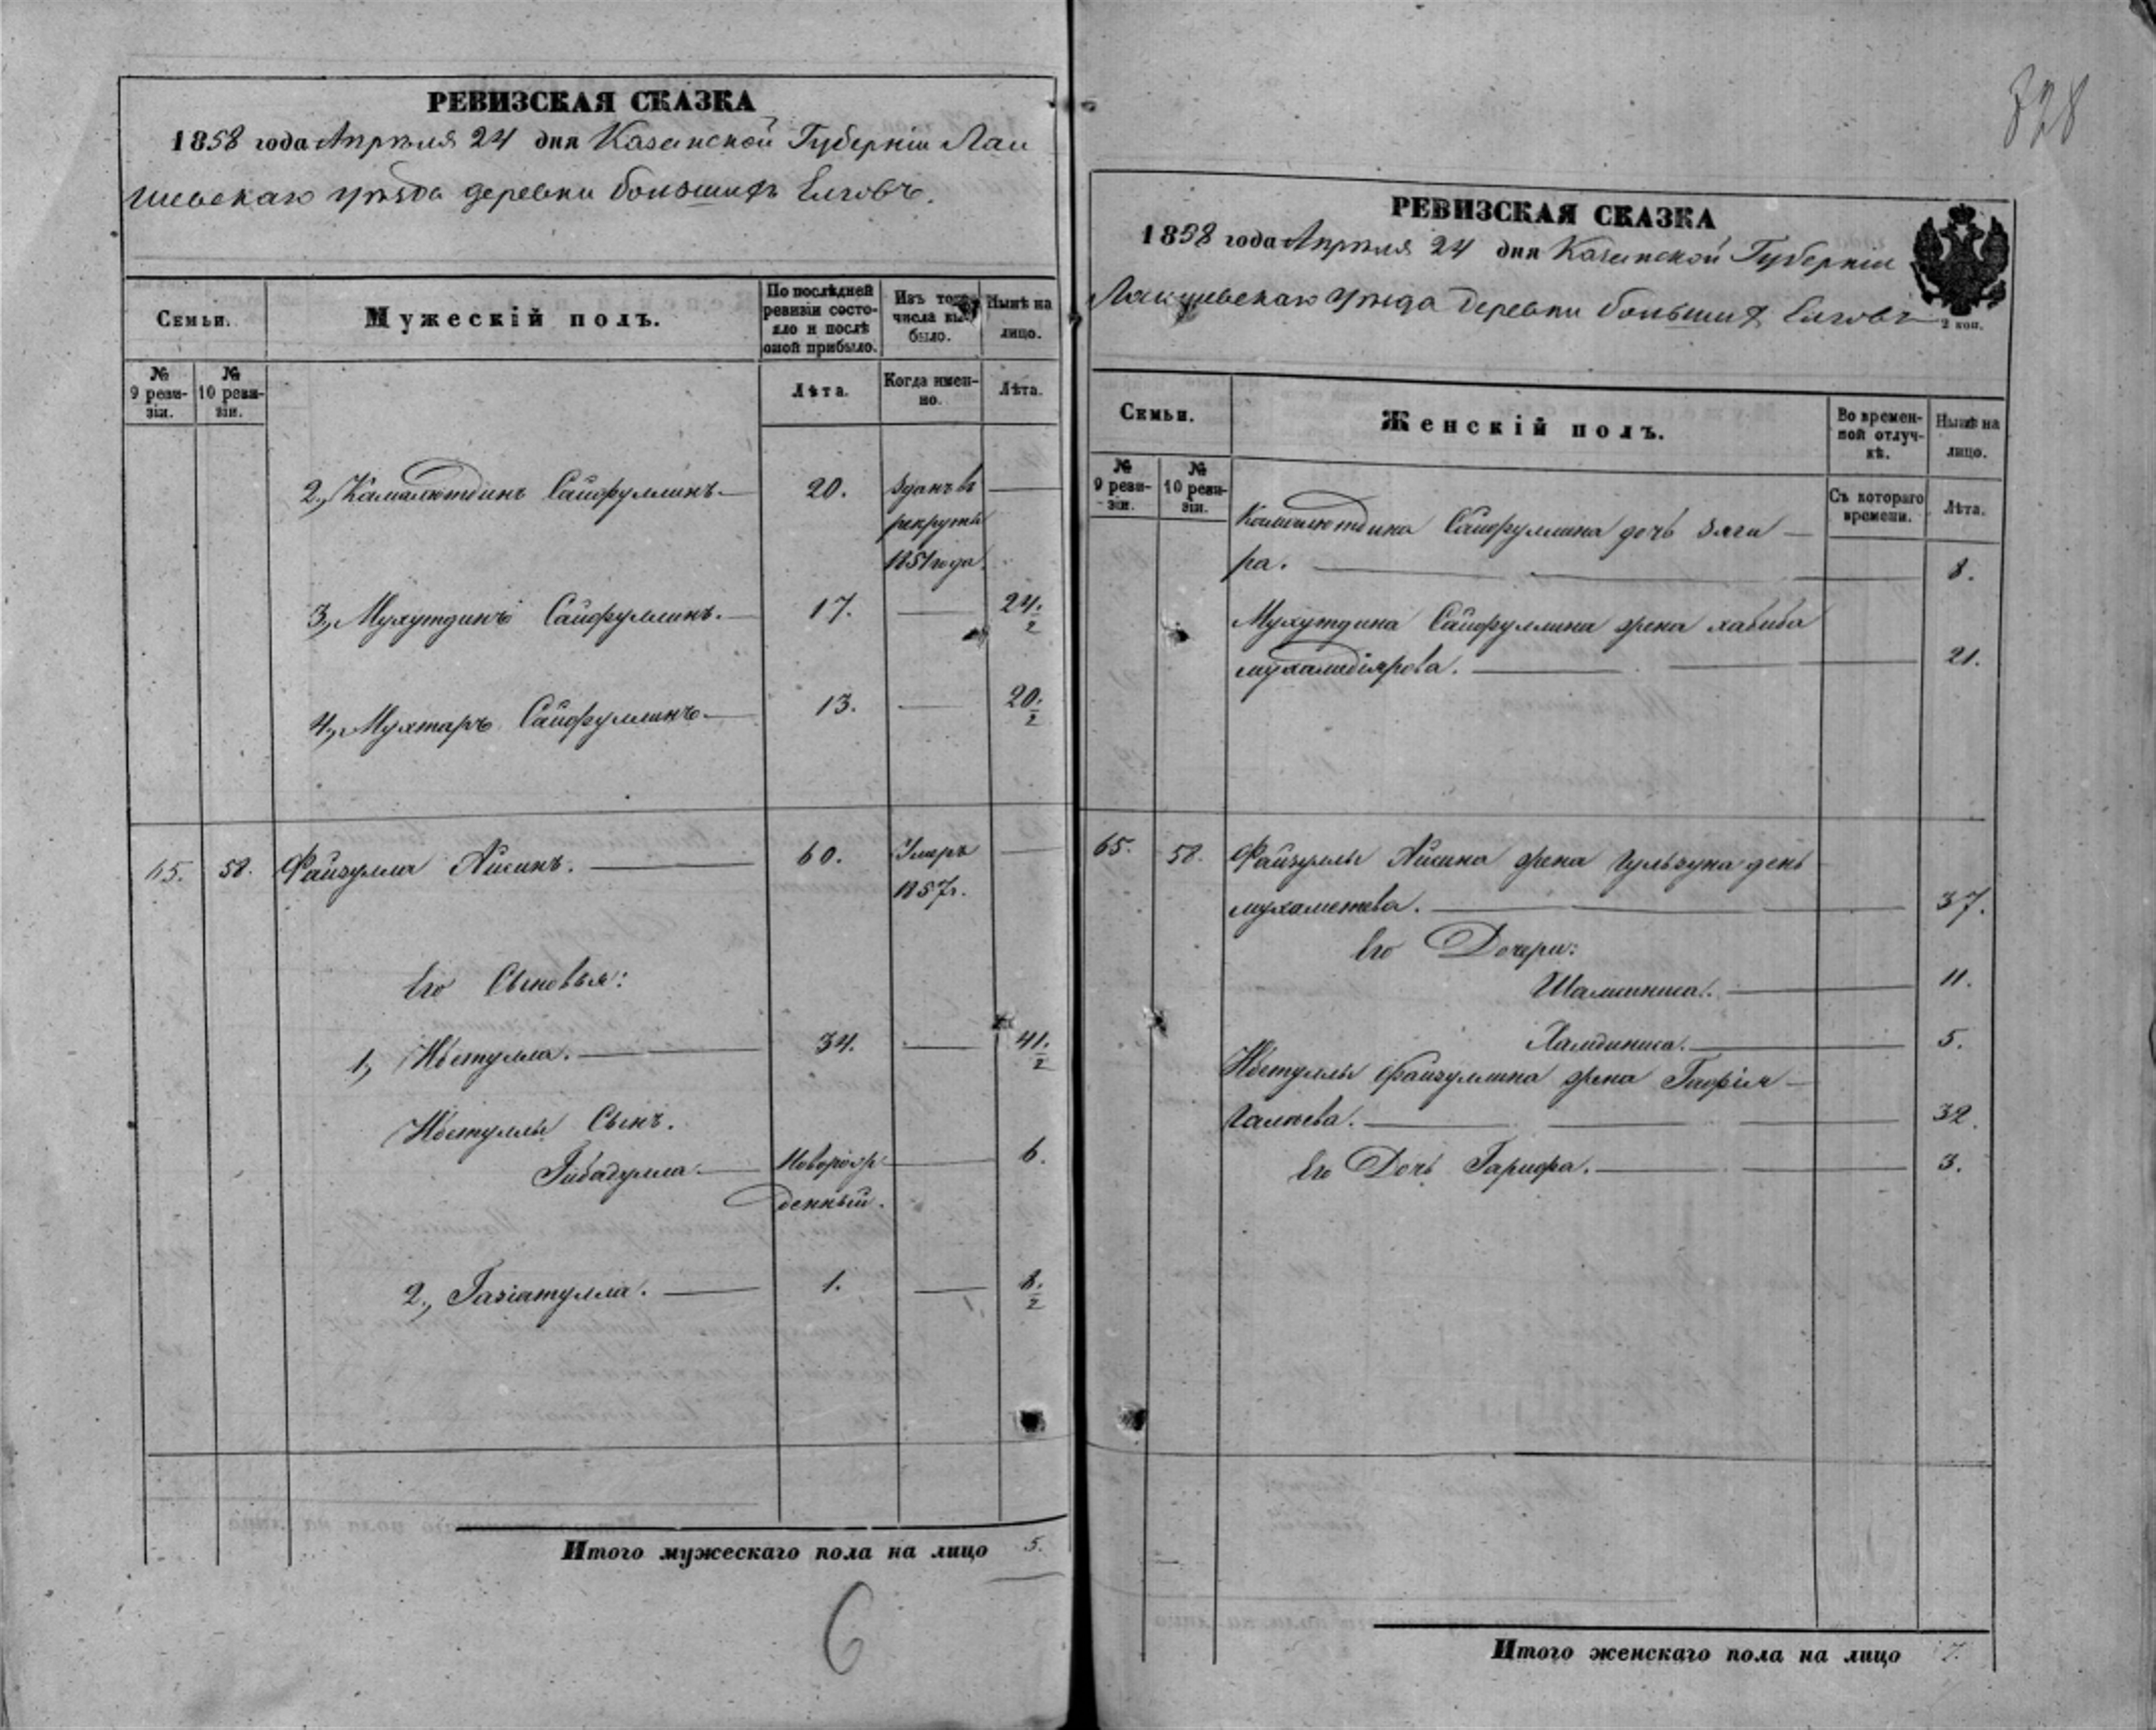 828
РЕВИЗСКАЯ СКАЗКА
1858 года Апрѣля 24 дня Казанской Губерніи Лаи
шевскаго уѣзда деревни большихъ Елговъ.
Семьи.
Мужескій полъ.
По послѣдней ревизіи состояло и послѣ оной прибыло.
Изъ того числа выбыло.
Нынѣ на лицо.
№ 9 ревизіи.
№ 10 ревизіи.
Лѣта.
Когда именно.
Лѣта.
2., Камалютдинъ Сайфуллинъ. 20. Зданъ въ
рекруты
1851 года.
3., Мухутдинъ Сайфуллинъ. 17. 24. 2
4., Мухтаръ Сайфуллинъ. 13. 20. 2
65. 58. Файзулла Аисинъ. 60. Умеръ
1857 г.
Его Сыновья:
1., Ибетулла. 34. 41. 2
Ибетуллы Сынъ.
Гибадулла. Новорож- 6.
денный.
2., Газіатулла. 1. 8. 2
Итого мужескаго пола на лицо 5.
6
РЕВИЗСКАЯ СКАЗКА
1858 года Апрѣля 24 дня Казанской Губерніи
Лаишевскаго уѣзда деревни большихъ Елговъ
2 коп.
Семьи.
Женскій полъ.
Во временной отлучкѣ.
Нынѣ на лицо.
№ 9 ревизіи.
№ 10 ревизіи.
Съ котораго времени.
Лѣта.
Камалютдина Сайфуллина дочь Заги
ра. 8.
Мухутдина Сайфуллина жена хабиба
мухамедіярова. 21.
65. 58. Файзуллы Аисина жена
мухаметева. 37.
Его Дочери:
Шамсиниса. 11.
Хамдиниса. 5.
Ибетуллы файзуллина жена Гафія
Галѣева. 32.
Его Дочь Гарифа. 3.
Итого женскаго пола на лицо 7.